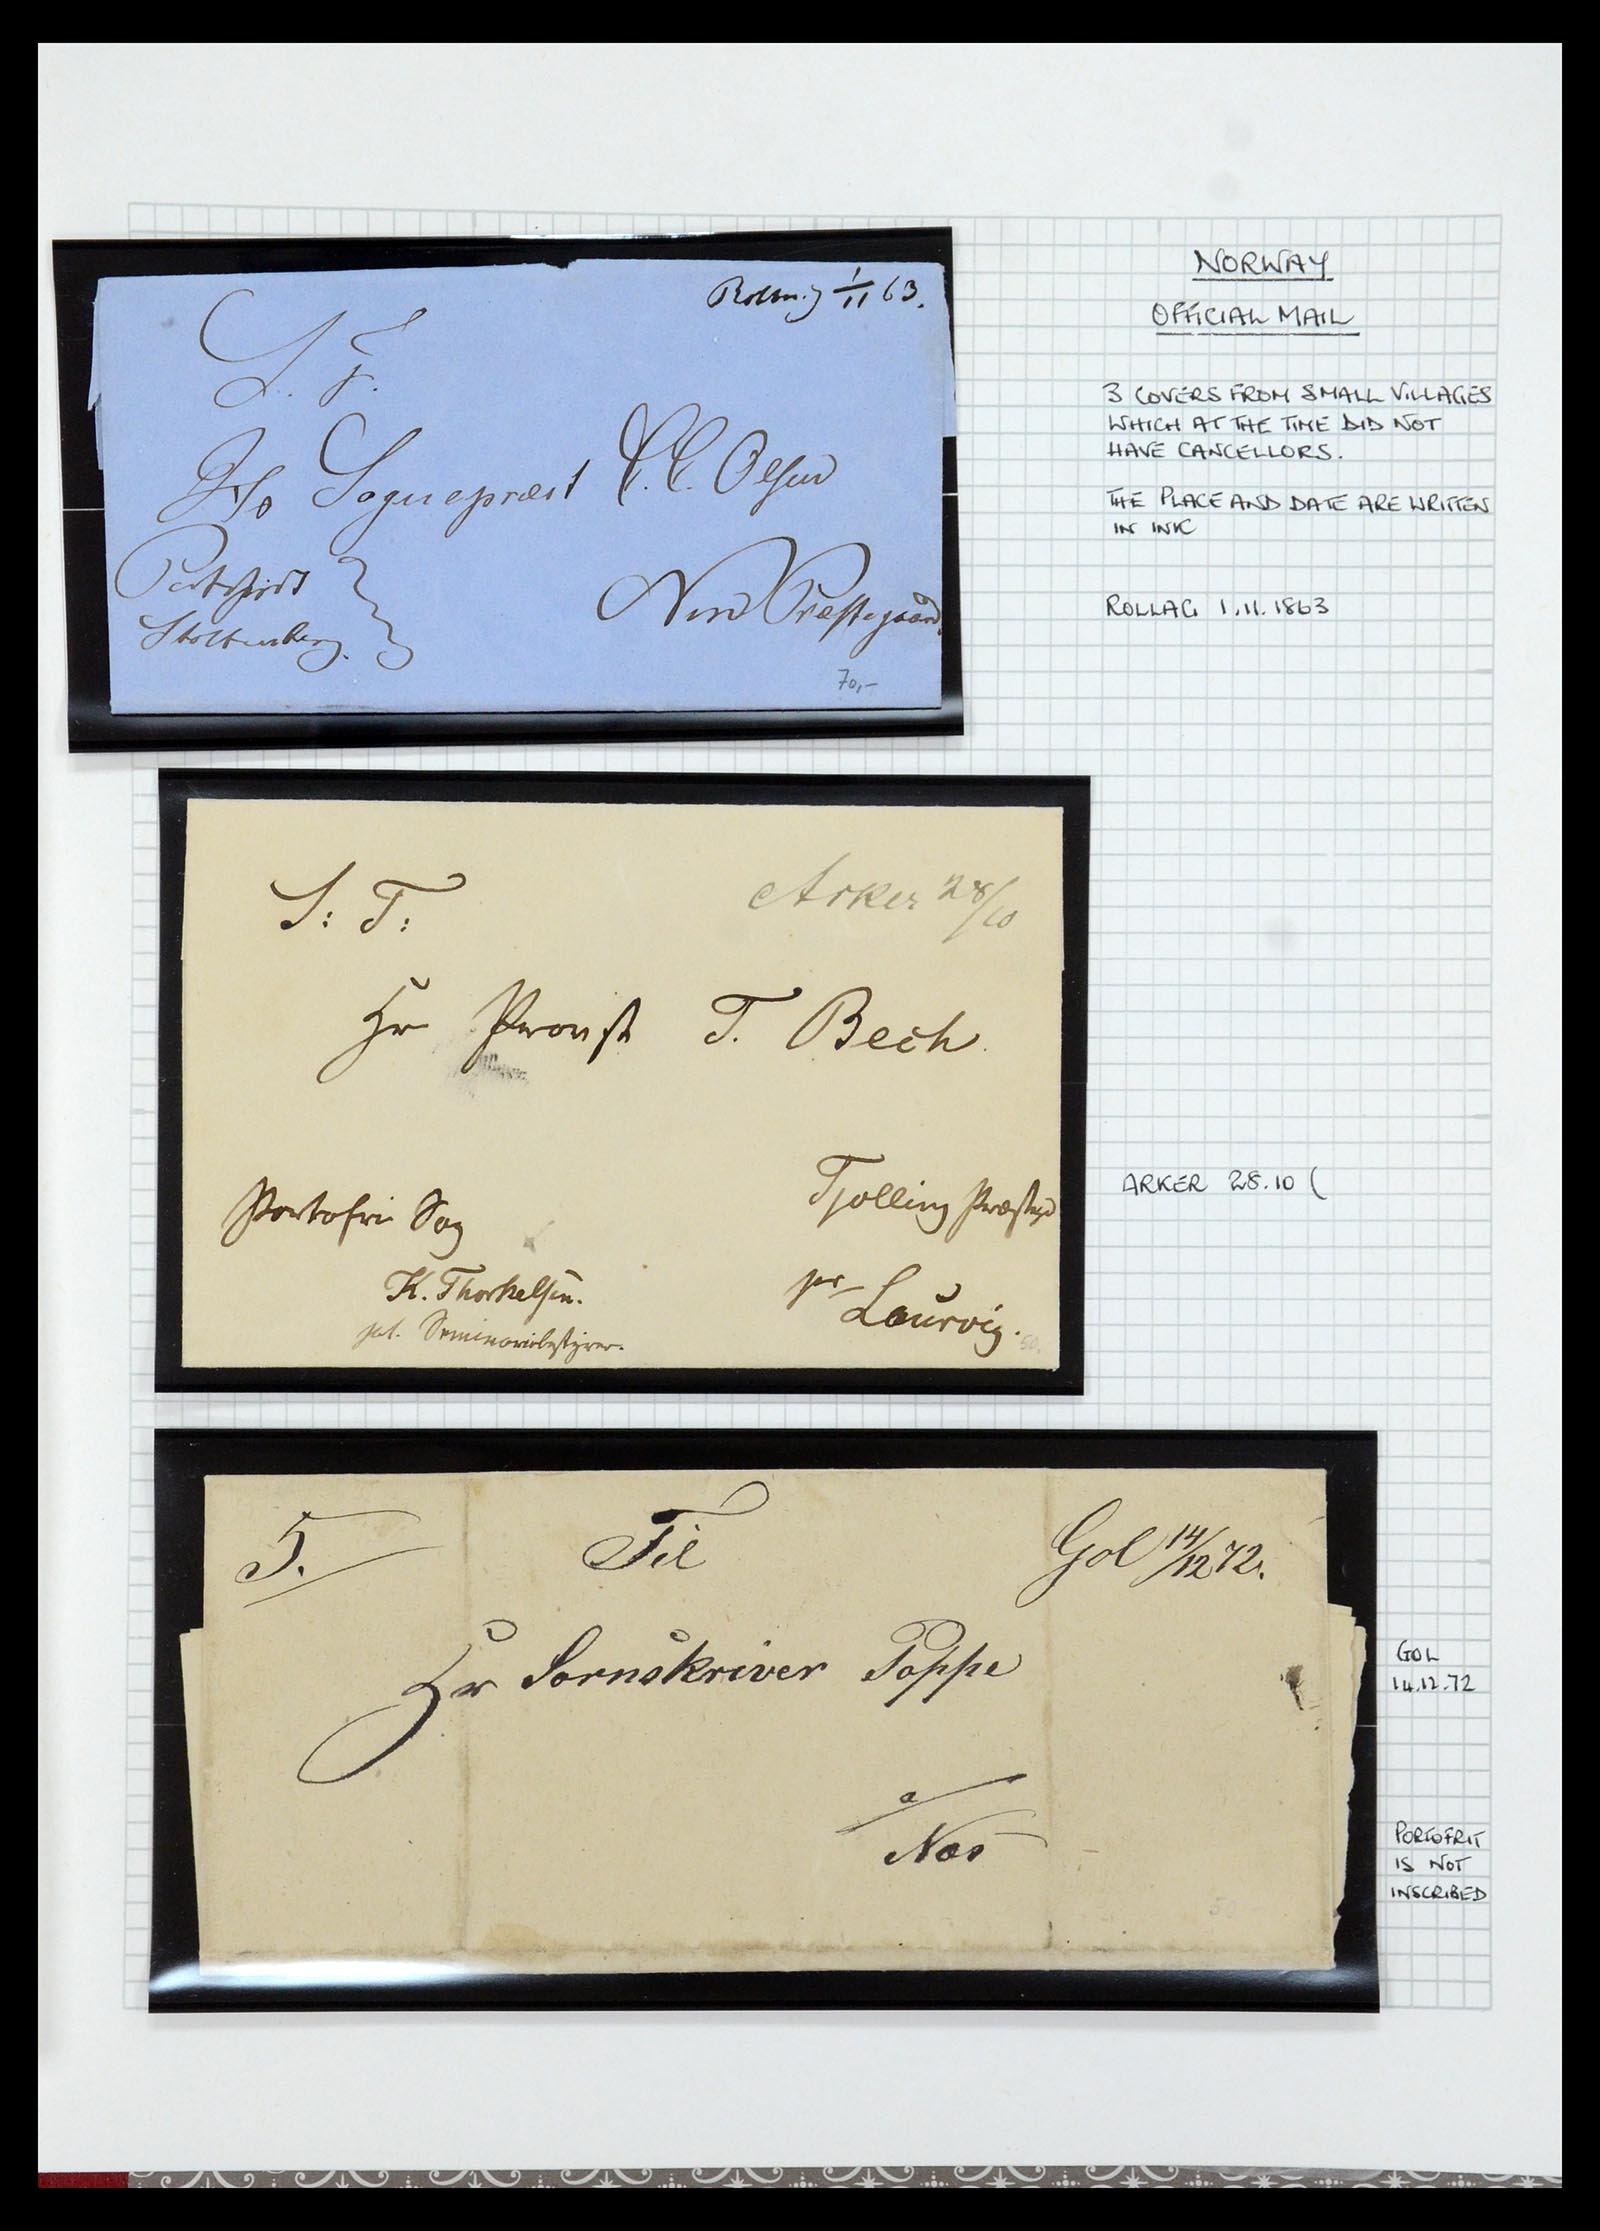 NORWAY
OFFICIAL MAIL
3 COVERS FROM SMALL VILLAGES
WHICH AT THE TIME DID NOT
HAVE CANCELLORS.
THE PLACE AND DATE ARE WRITTEN
IN INK
ROLLAG 1.11.1863
1/11 63.
S. T.
Sognepræst C. C. Olsen
Stoltenberg.
Præstegaard.
70,-
Arker 28/10
S: T:
Hr Provst T. Bech.
Portofri Sag
Tjølling Præstegd
K. Thorkelsen.
pr
Laurvig.
50.
ARKER 28.10 (
5.
Til
Gol 14/12 72.
Hr Sornskriver Poppe
a
Næs
50 -
GOL
14.12.72
PORTOFRIT
IS NOT
INSCRIBED